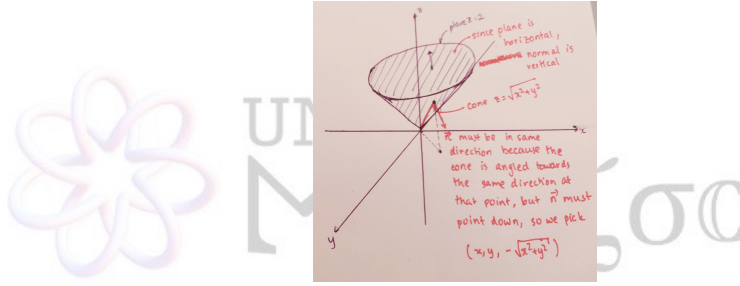 z
plane z=2
since plane is
horizontal,
normal is
vertical
cone z=√x²+y²
x
n⃗ must be in same
direction because the
cone is angled towards
the same direction at
that point, but n⃗ must
point down, so we pick
(x, y, -√x²+y²)
y
UN
M
ζσC